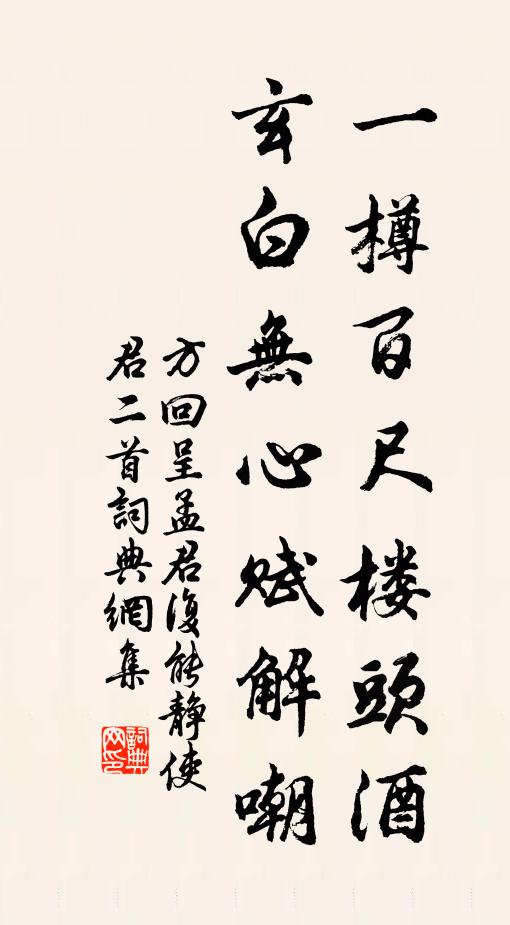 一樽百尺楼頭酒
玄白無心赋解嘲
方回呈孟君復能静使
君二首詞典網集
詞典
网印